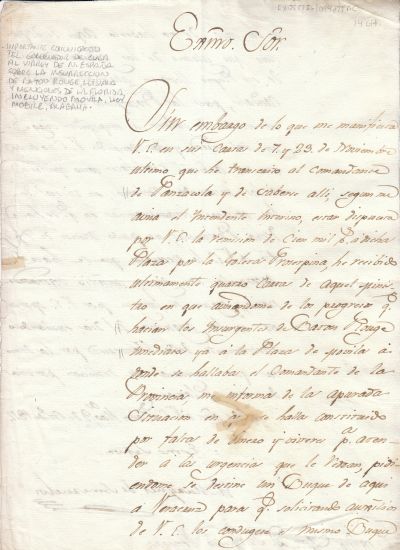 IMPORTANTE COMUNICADO
DEL GOBERNADOR DE CUBA
AL VIRREY DE N. ESPAÑA
SOBRE LA INSURRECCION
DE BATON ROUGE, LOUISIANA
Y MOVILES DE W. FLORIDA,
INCLUYENDO MOVILA, HOY
MOBILE, ALABAMA.
Exmo. Sor.
Sin embargo de lo que me manifiesta
V.E. en sus Cartas de 7. y 23. de Noviembre
ultimo que he transcrito al Comandante
de Panzacola y de saberse alli, segun me
avisa el Intendente Interino, estar dispuesta
por V.E. la remision de Cien mil p.s á dicha
Plaza por la Goleta Proserpina, he recibido
ultimamente quatro Cartas de aquel Minis-
tro en que avisandome de los progresos q.e
hacian los Insurgentes de Baton Rouge
inmediatos ya á la Plaza de Movila á
donde se hallaba el Comandante de la
Provincia, me informa de la apurada
Situacion en q.e se halla constituido
por falta de dinero y viveres p.a aten-
der á la urgencia que le instan, pidi-
endome se destine un Buque de aqui
a Veracruz para q.e solicitando auxilios
de V.E. los conduzca el mismo Buque